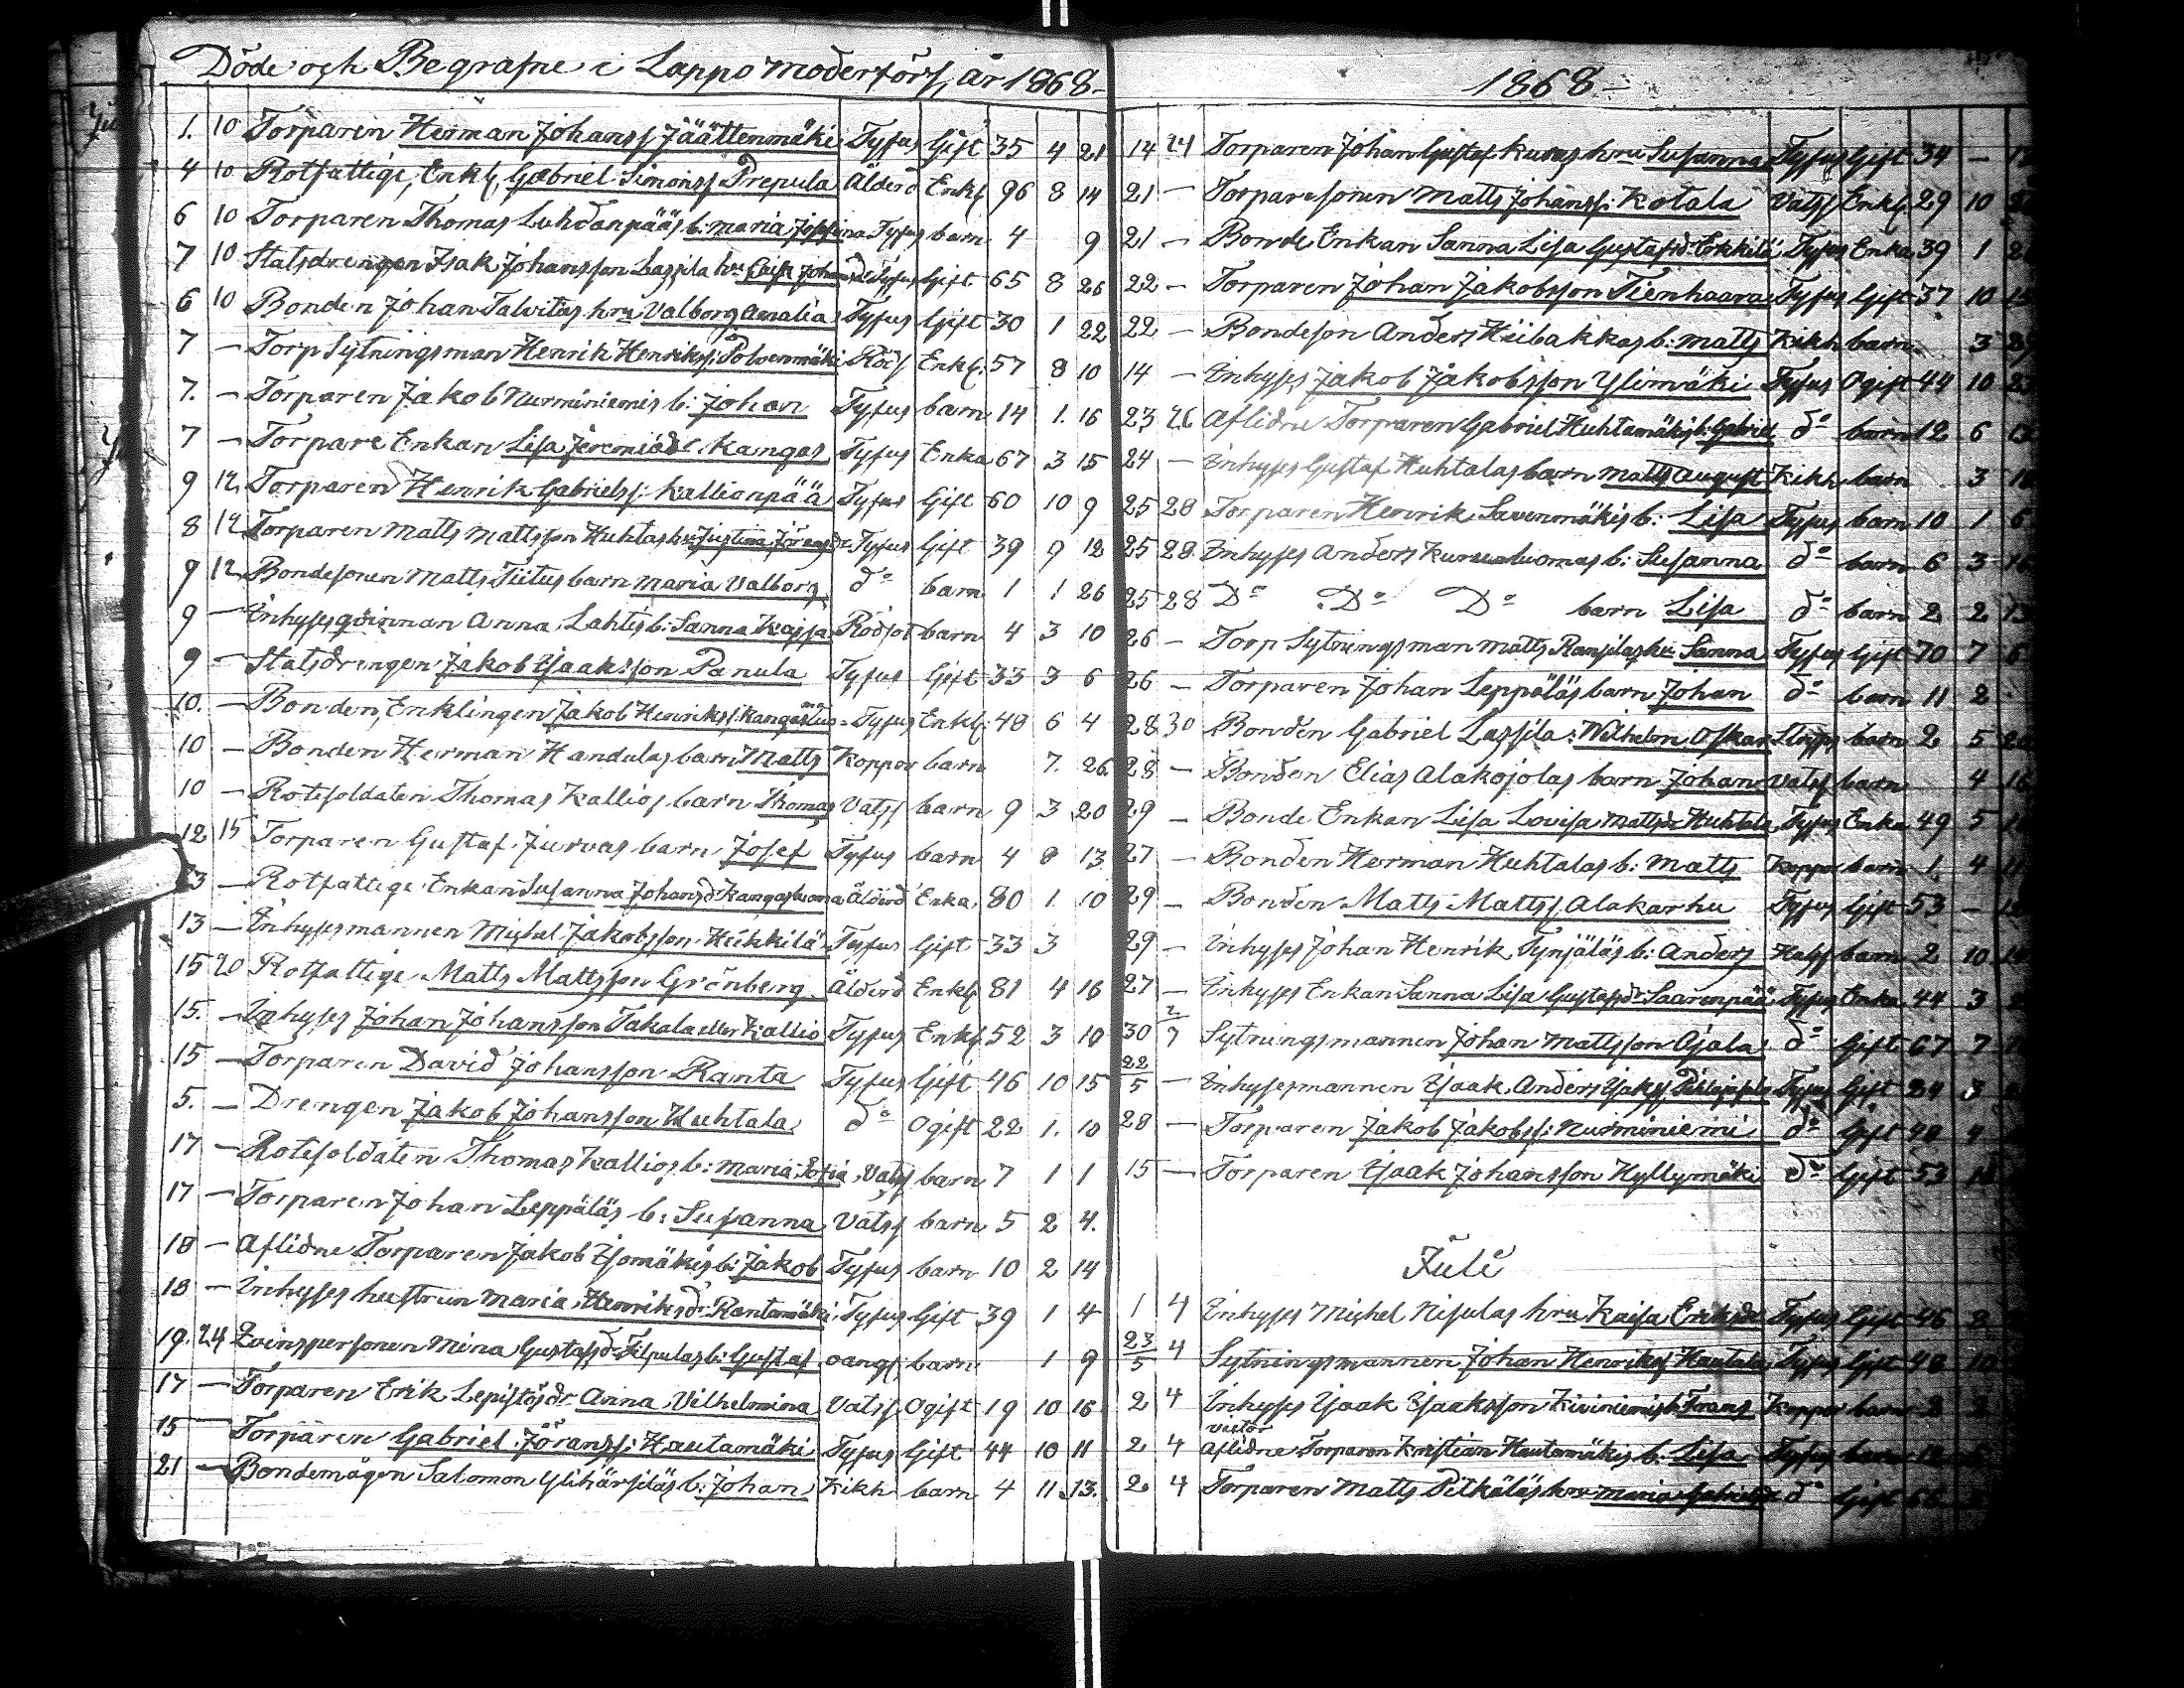 Döde och Begrafne i Lappo moderförs, år 1868.
1. 10 Torparen Herman Johanss. Jäättenmäki Tyfus Gift 35 4 21
4 10 Rotfattige, Enkl. Gabriel Simonss Prepula Ålderd Enkl 96 8 14
6 10 Torparen Thomas Luhdanpääs b: maria Josefina Tyfus barn 4 9
7 10 Statsdrengen Isak Johansson Lassila hu Caisa Johansdr Tyfus Gift 65 8 26
6 10 Bonden Johan Talvities hru Valborg Amalia Tyfus Gift 30 1 22
7 — Torp Sytningsman Henrik Henrikss: Polvenmäki Röds Enkl. 57 8 10
7. — Torparen Jakob Nurminiemis b: Johan Tyfus barn 14 1. 16
7 — Torpare Enkan Lisa Jeremiædr Kangas Tyfus Enka 67 3 15
9 12, Torparen Henrik Gabrielss: Kallionpää Tyfus Gift 60 10 9
8 12 Torparen Matts Mattsson Huhtas hu Justina Jöransdr Tyfus Gift 39 9 12
9 12 Bondesonen Matts Tiitus barn maria Valborg do barn 1 1 26
9 — Inhysesqvinnan Anna Lahtis b: Sanna Kajsa Rödsot barn 4 3 10
9 — Statsdrengen Jakob Isaaksson Panula Tyfus Gift 33 3 6
10. — Bonden, Enklingen Jakob Henrikss: Tyfus Enkl. 48 6 4
10 — Bonden Herman Handulas barn Matts Koppor barn 7. 26
10 — Rotesoldaten Thomas Kallios barn Thomas Vatss barn 9 3 20
12 15 Torparen Gustaf Jurvas barn Josef Tyfus barn 4 8 13
13 — Rotfattige Enkan Susanna Johansdr Kangasluoma Ålderd Enka 80 1. 10
13 — Inhysesmannen Michel Jakobsson Heikkilä Tyfus Gift 33 3
15 20 Rotfattige Matts Mattsson Grönberg Ålderd Enkl 81 4 16
15. — Inhyses Johan Johansson Takala eller Kallio Tyfus Enkl 52 3 10
15 — Torparen David Johansson Ranta Tyfus Gift 46 10 15
5. — Drengen Jakob Johansson Huhtala do Ogift 22 1. 10
17 — Rotesoldaten Thomas Kallios b: Maria Sofia Vatss barn 7 1 1
17 — Torparen Johan Leppäläs b: Susanna Vatss barn 5 2 4.
18 — Aflidne Torparen Jakob Isomäkis b: Jakob Tyfus barn 10 2 14
18 — Inhyses hustrun Maria Henriksdr Rantamäki Tyfus Gift 39 1 4
19. 24 Qvinspersonen Mina Gustafsdr Filpulas b: Gustaf oangf. barn 1 9
17 — Torparen Erik Lepistös dr Anna Vilhelmina Vatss Ogift 19 10 16
15 Torparen Gabriel Jöranss: Hautamäki Tyfus Gift 44 10 11
21 — Bondemågen Salomon Ylihärsiläs b. Johan Kikh barn 4 11 13.
1868
14 24 Torparen Johan Gustaf Kuvas hru Susanna Tyfus Gift 34 —
21 — Torparesonen Matts Johanss: Kotala Vatss Enkl. 29 10
21 — Bonde Enkan Sanna Lisa Gustafsdr Erkkilä Tyfus Enka 39 1
22 — Torparen Johan Jakobsson Tienhaara Tyfus Gift 37 10
22 — Bondeson Anders Hiibakkas b: Matts Kikh barn 3
14 — Inhyses Jakob Jakobsson Ylimäki Tyfus Ogift 44 10 23
23 26 Aflidne Torparen Gabriel Huhtamäkis b. Gabriel do barn 12 6
24 — Inhyses Gustaf Huhtalas barn Matts August Kikh barn 3
25 28 Torparen Henrik Savenmäkis b: Lisa Tyfus barn 10 1 6
25 28 Inhyses Anders b: Susanna do barn 6 3 16
25 28 Do Do Do barn Lisa do barn 2 2
26 — Torp Sytningsman Matts hu Sanna Tyfus Gift 70 7 6
26 — Torparen Johan Leppäläs barn Johan do barn 11 2
28 30 Bonden Gabriel Lassila: Wilhelm Oskar barn 2 5
28 — Bonden Elias Alakojolas barn Johan Vatss barn 4 16
29 — Bonde Enkan Lisa Lovisa Mattsdr Huhtala Tyfus Enka 49 5
27 — Bonden Herman Huhtalas b: Matts Koppor barn 1. 4
29 — Bonden Matts Matts Alakarhu Tyfus Gift 53 —
29 — Inhyses Johan Henrik Tynjäläs b: Anders Halss barn 2 10
27 — Inhyses Enkan Sanna Lisa Gustafsdr Saarenpää Tyfus Enka 44 3
30 2/7 Sytningsmannen Johan Mattsson Ojala do Gift 67 7
22/5 — Inhysesmannen Isaak Anders Isakss Tyfus Gift 3
28 — Torparen Jakob Jakobss: Nurminiemi do Gift 48 4
15 — Torparen Isaak Johansson Hyllymäki do Gift 53
Juli
1 4 Inhyses Michel Nisulas hru Kaisa Eriksdr Tyfus Gift 46 8
23/5 4 Sytningsmannen Johan Henrikss Hautala Tyfus Gift 48
2 4 Inhyses Isaak Isaaksson Kiviniemis b. Frans Koppor barn
Victor
2 4 Aflidne Torparen Kristian Hautamäkis b. Lisa Tyfus barn
2 4 Torparen Matts Pitkäläs hru Maria do Gift